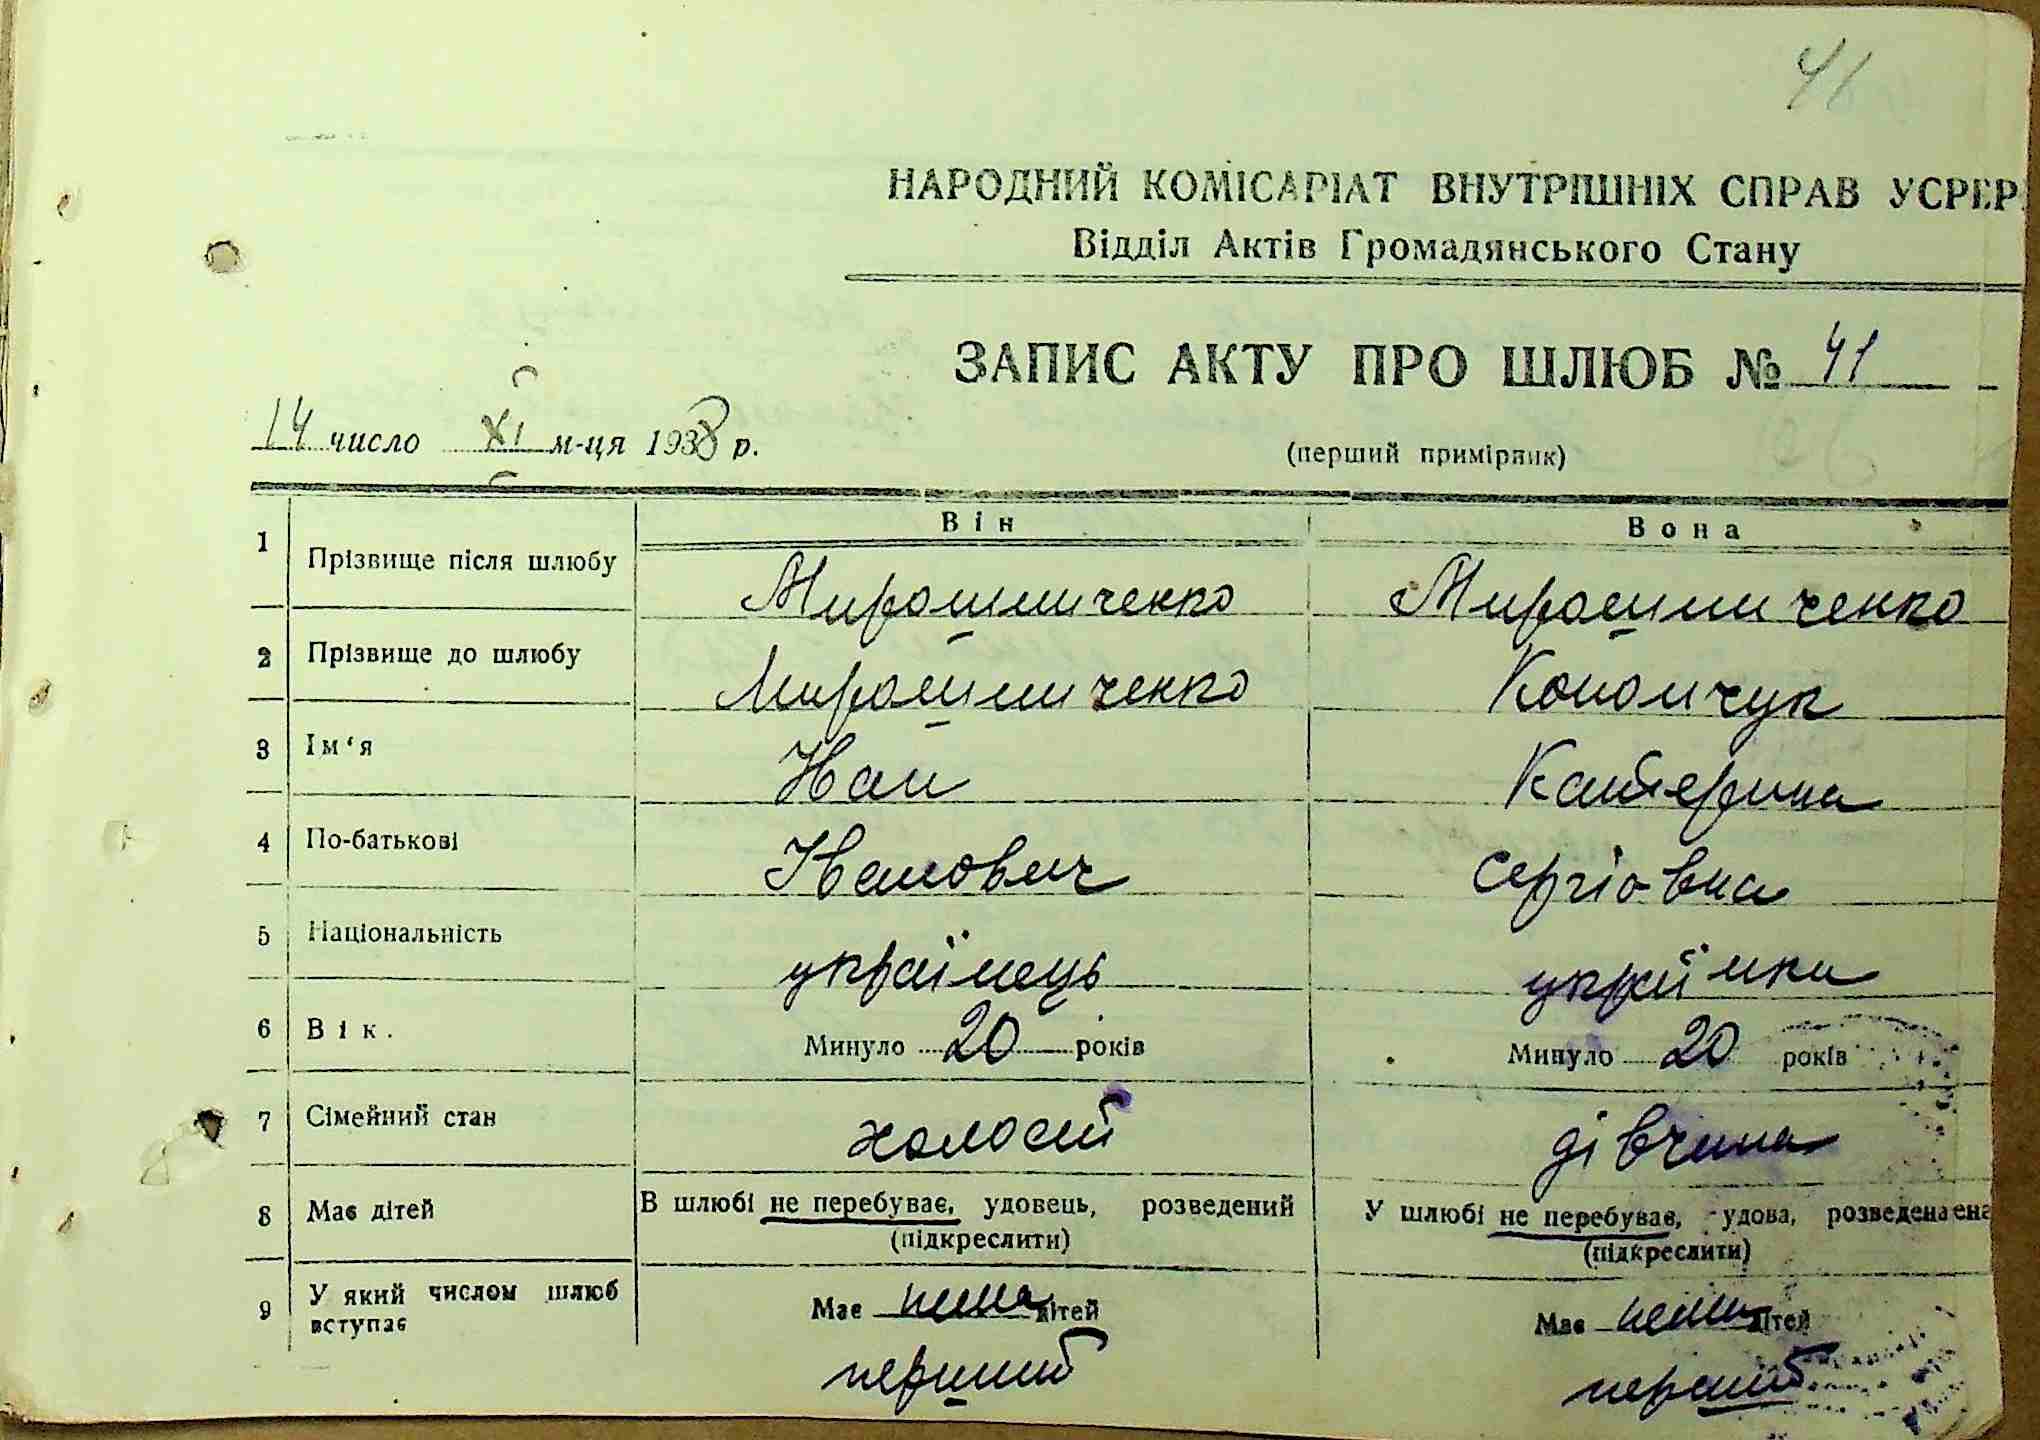 41
НАРОДНИЙ КОМІСАРІАТ ВНУТРІШНІХ СПРАВ УСРР
Відділ Актів Громадянського Стану
ЗАПИС АКТУ ПРО ШЛЮБ № 41
14 число XI м-ця 1938 р.
(перший примірник)
Він Вона
1 Прізвище після шлюбу Мирошниченко Мирошниченко
2 Прізвище до шлюбу Мирошниченко Конончук
3 Ім'я Іван Катерина
4 По-батькові Іванович Сергіовна
5 Національність українець українка
6 Вік. Минуло 20 років Минуло 20 років
7 Сімейний стан холостий дівчина
8 Має дітей В шлюбі не перебуває, удовець, розведений У шлюбі не перебуває, удова, розведена
(підкреслити) (підкреслити)
9 У який числом шлюб вступає Має нема дітей Має нема дітей
перший перший